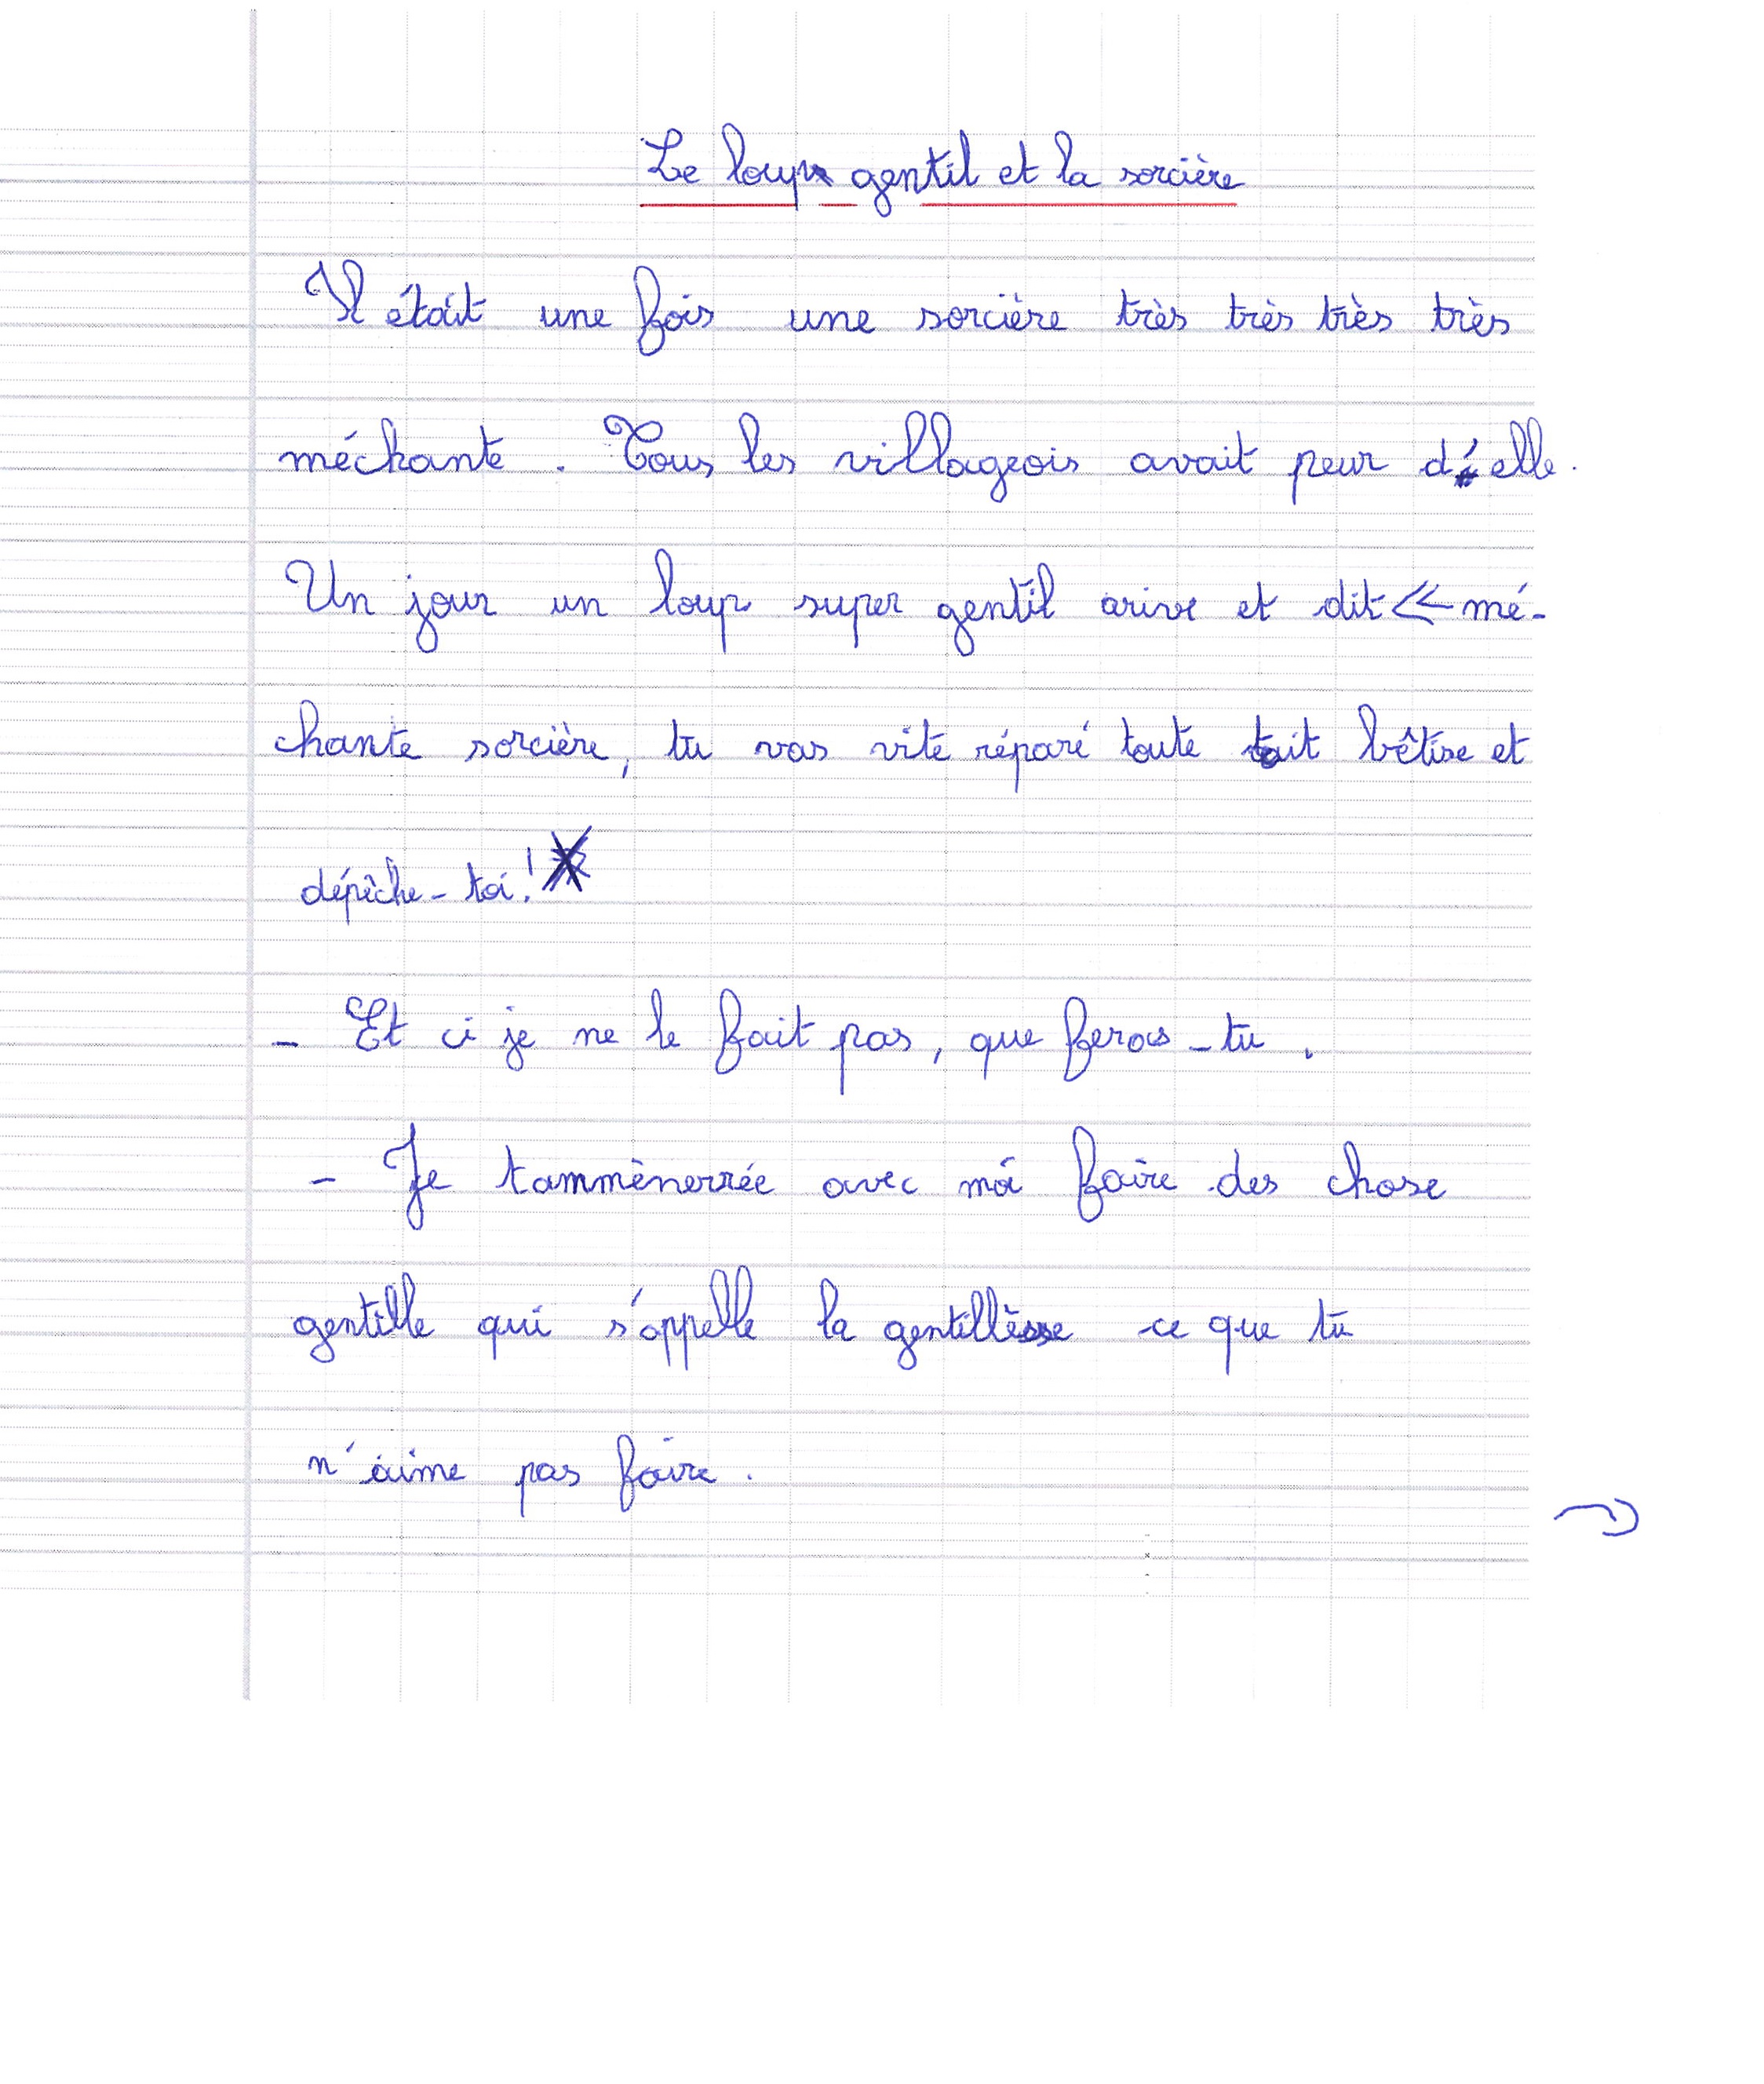 Le loup gentil et la sorcière
Il était une fois une sorcière très très très très
méchante. Tous les villageois avait peur d'elle.
Un jour un loup super gentil arive et dit << mé-
chante sorcière, tu vas vite réparé toute tait bêtise et
dépêche-toi!
- Et ci je ne le fait pas, que feras-tu.
- Je tammènerrée avec moi faire des chose
gentille qui s'appelle la gentillèsse ce que tu
n'aime pas faire.